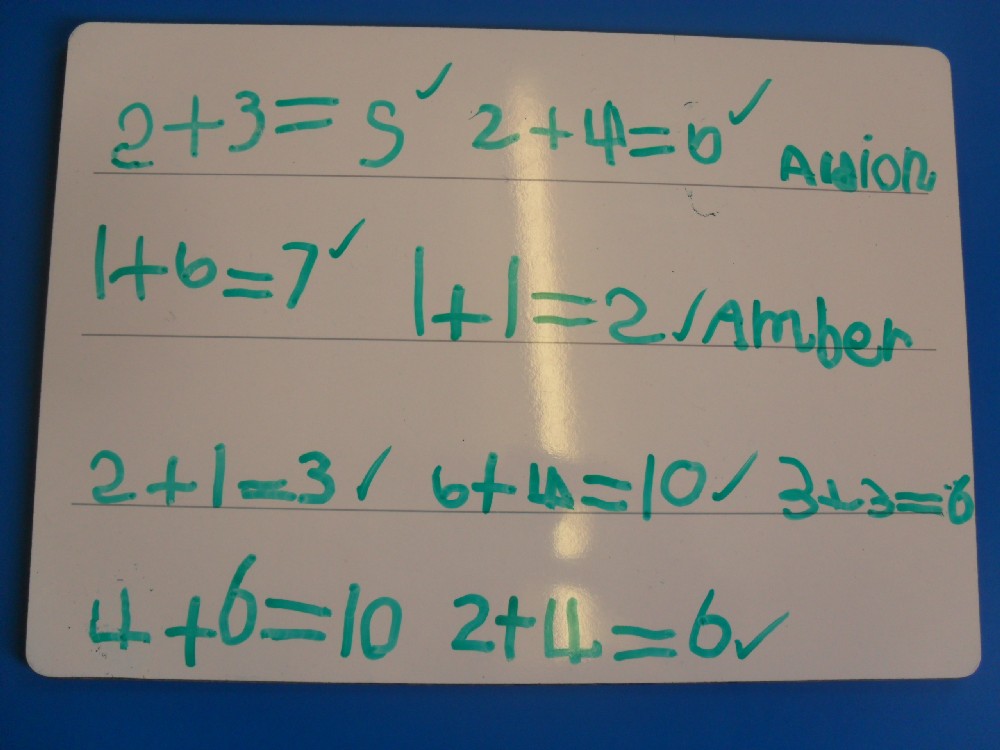 2+3=5 ✓ 2+4=6 ✓
1+6=7 ✓ 1+1=2 ✓ Amber
2+1=3 ✓ 6+4=10 ✓ 3+3=6
4+6=10 2+4=6 ✓